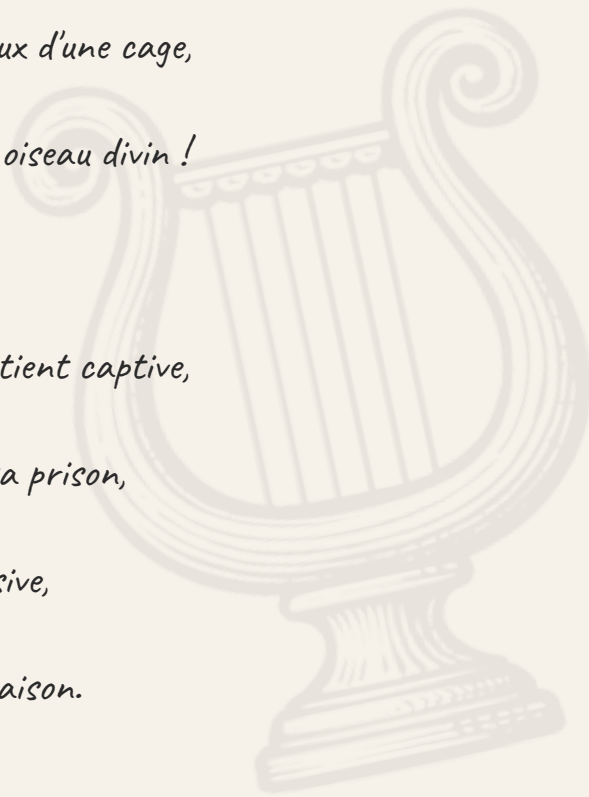 ux d'une cage,
oiseau divin !
tient captive,
a prison,
sive,
aison.